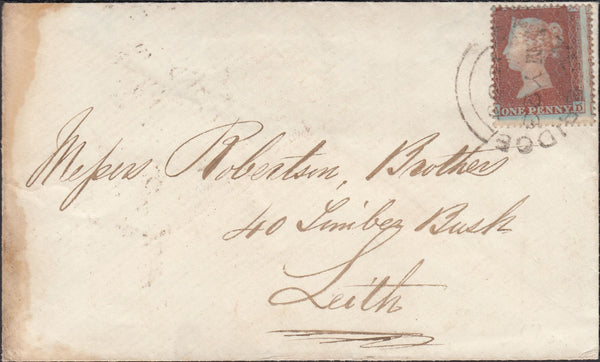 ONE PENNY
IDGE
Messrs Robertson, Brothers
40 Timber Bush
Leith